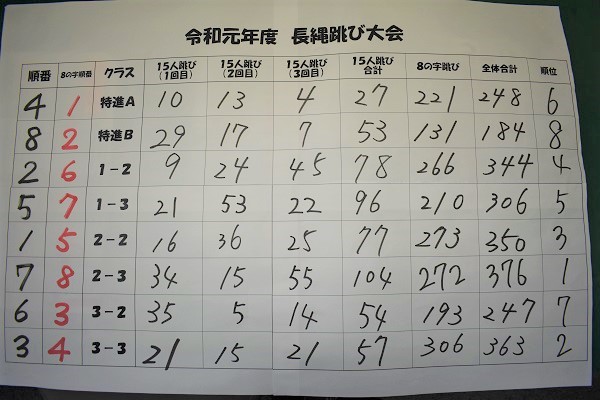 令和元年度 長縄跳び大会
順番 8の字順番 クラス 15人跳び(1回目) 15人跳び(2回目) 15人跳び(3回目) 15人跳び合計 8の字跳び 全体合計 順位
4 1 特進A 10 13 4 27 221 248 6
8 2 特進B 29 17 7 53 131 184 8
2 6 1-2 9 24 45 78 266 344 4
5 7 1-3 21 53 22 96 210 306 5
1 5 2-2 16 36 25 77 273 350 3
7 8 2-3 34 15 55 104 272 376 1
6 3 3-2 35 5 14 54 193 247 7
3 4 3-3 21 15 21 57 306 363 2